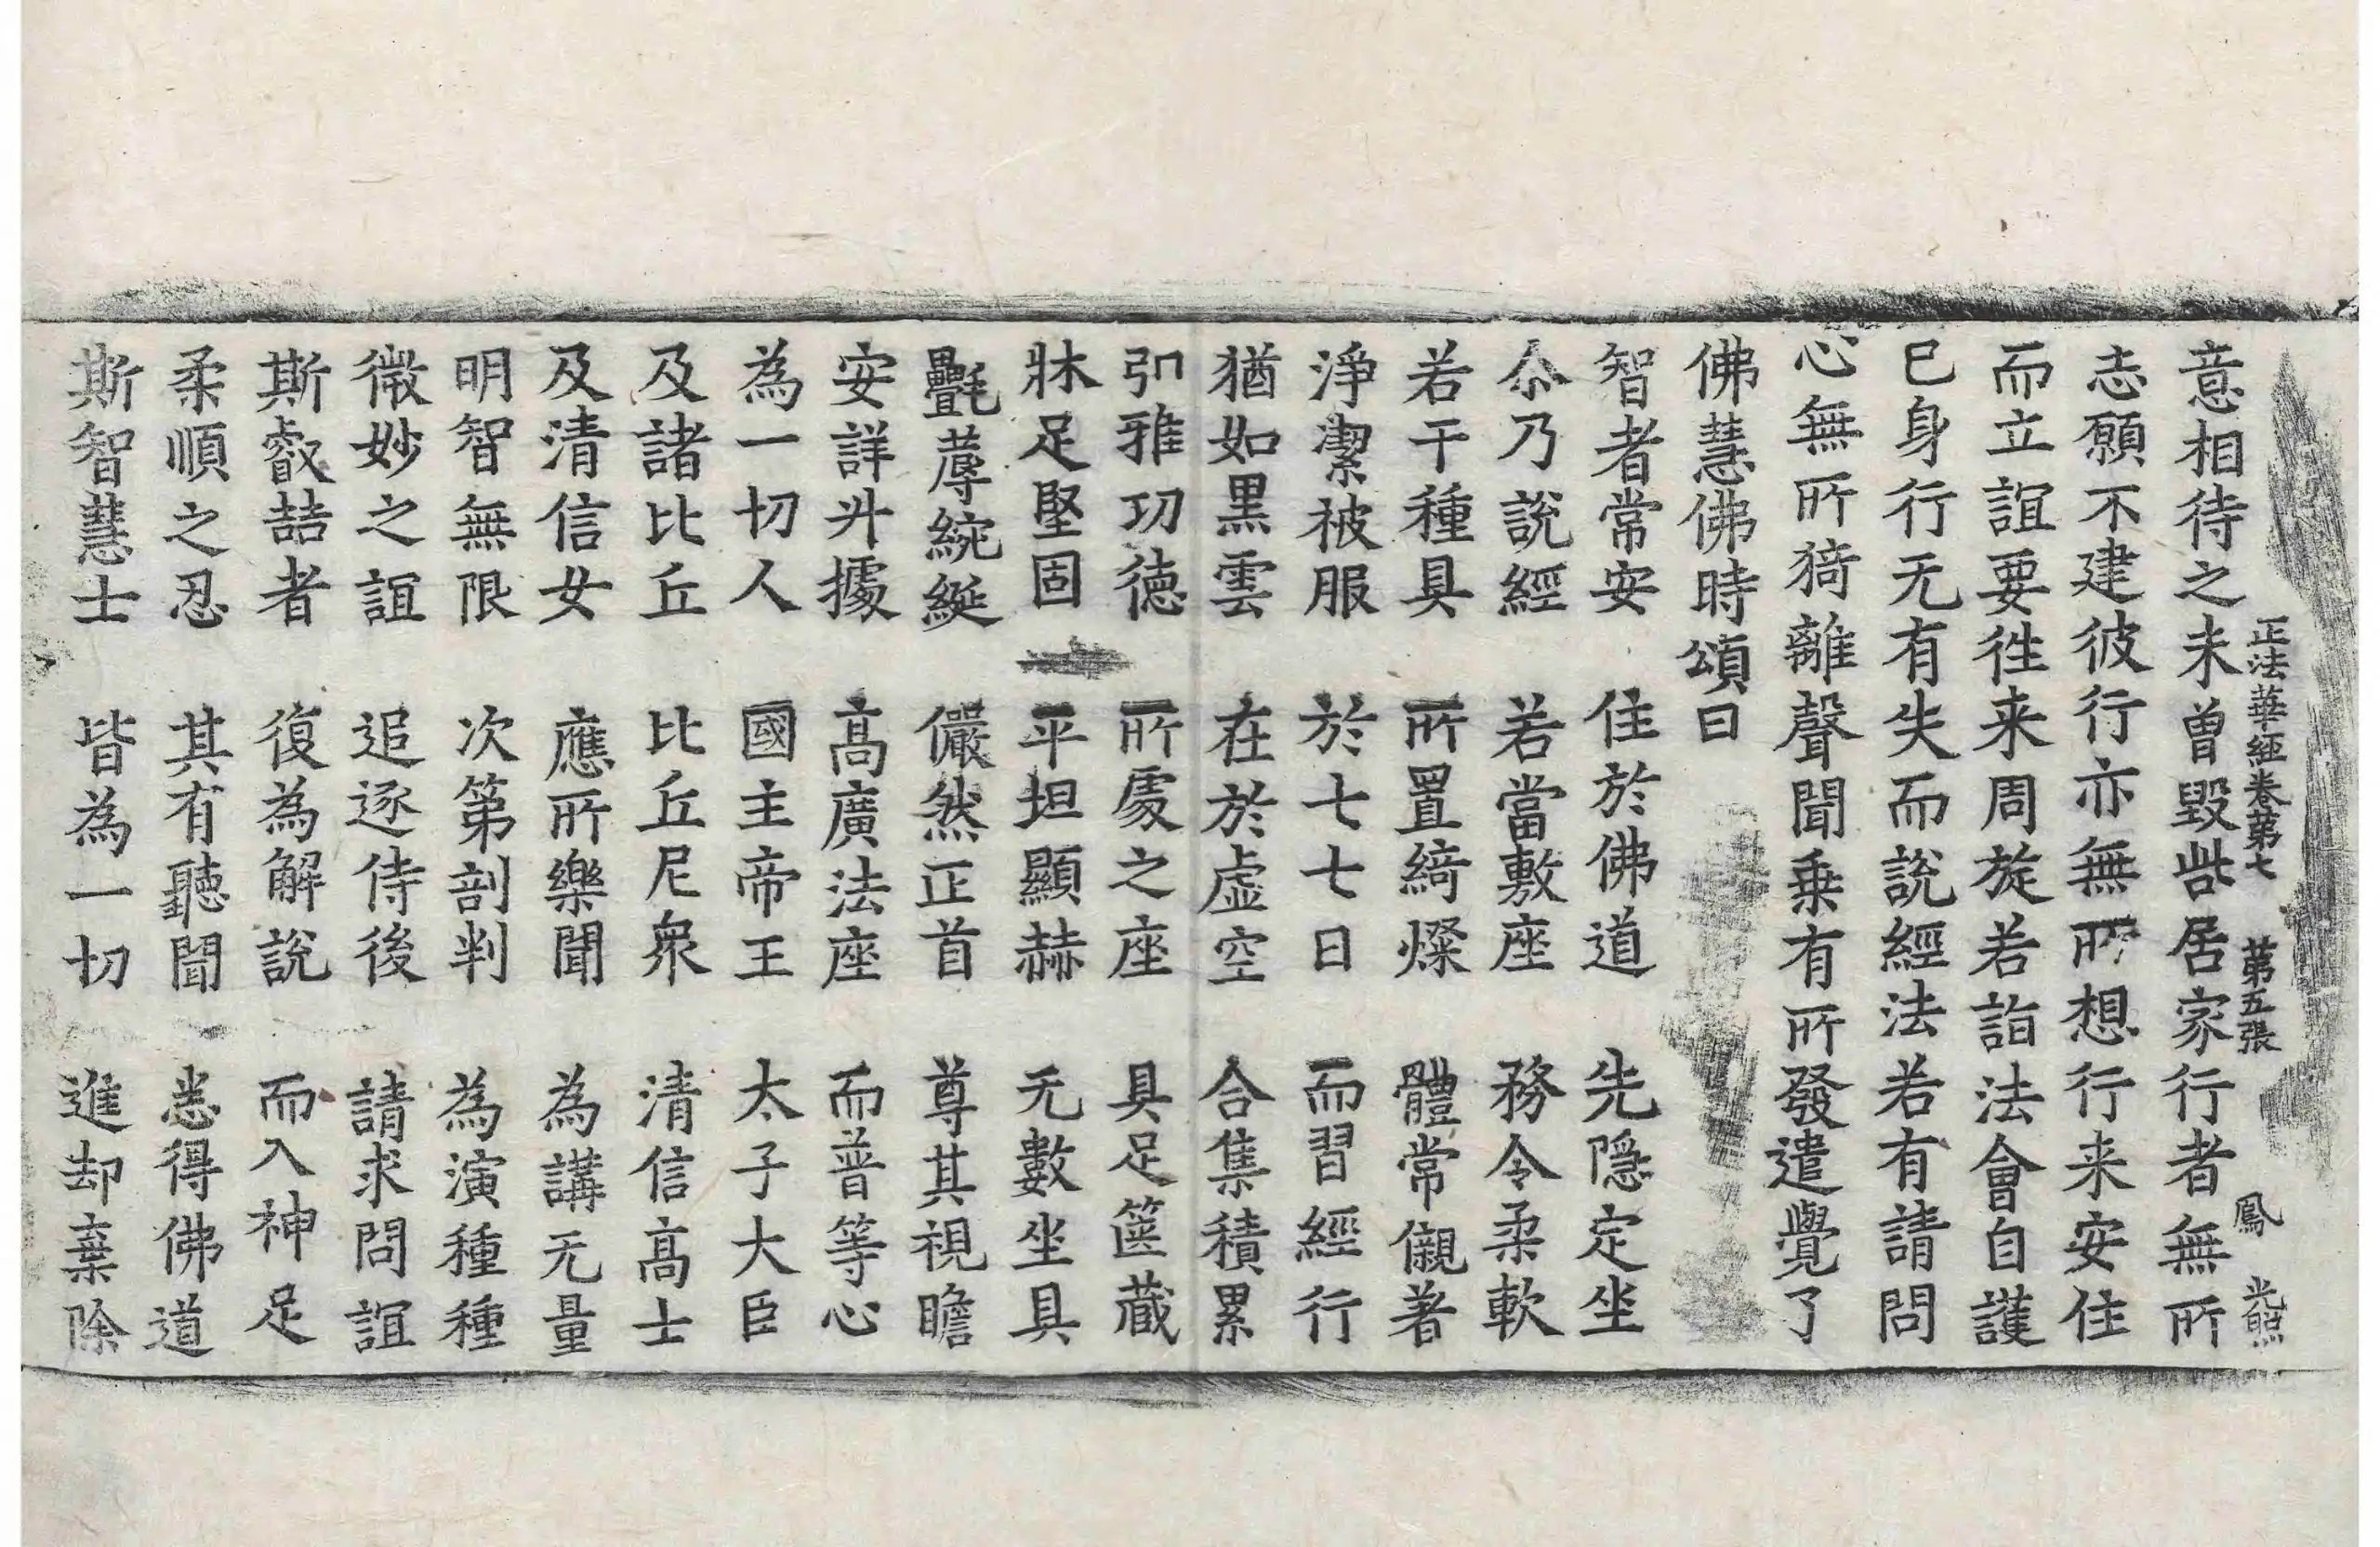 正法華經卷第七 第五張 鳳 光熙
意相待之未曾毀呰居家行者無所
志願不建彼行亦無所想行来安住
而立誼要徃来周旋若詣法會自護
已身行无有失而說經法若有請問
心無所猗離聲聞乗有所發遣覺了
佛慧佛時頌曰
智者常安 住於佛道 先隱定坐
尒乃說經 若當敷座 務令柔軟
若干種具 所置綺燦 體常儭著
淨潔被服 於七七日 而習經行
猶如黒雲 在於虛空 合集積累
引雅功德 所處之座 具足篋藏
牀足堅固 平坦顯赫 无數坐具
氎蓐綩綖 儼然正首 尊其視瞻
安詳升據 髙廣法座 而普等心
為一切人 國主帝王 太子大臣
及諸比丘 比丘尼衆 清信髙士
及清信女 應所樂聞 為講无量
明智無限 次第剖判 為演種種
微妙之誼 追逐侍後 請求問誼
斯叡喆者 復為解說 而入神足
柔順之忍 其有聽聞 悉得佛道
斯智慧士 皆為一切 進却棄除